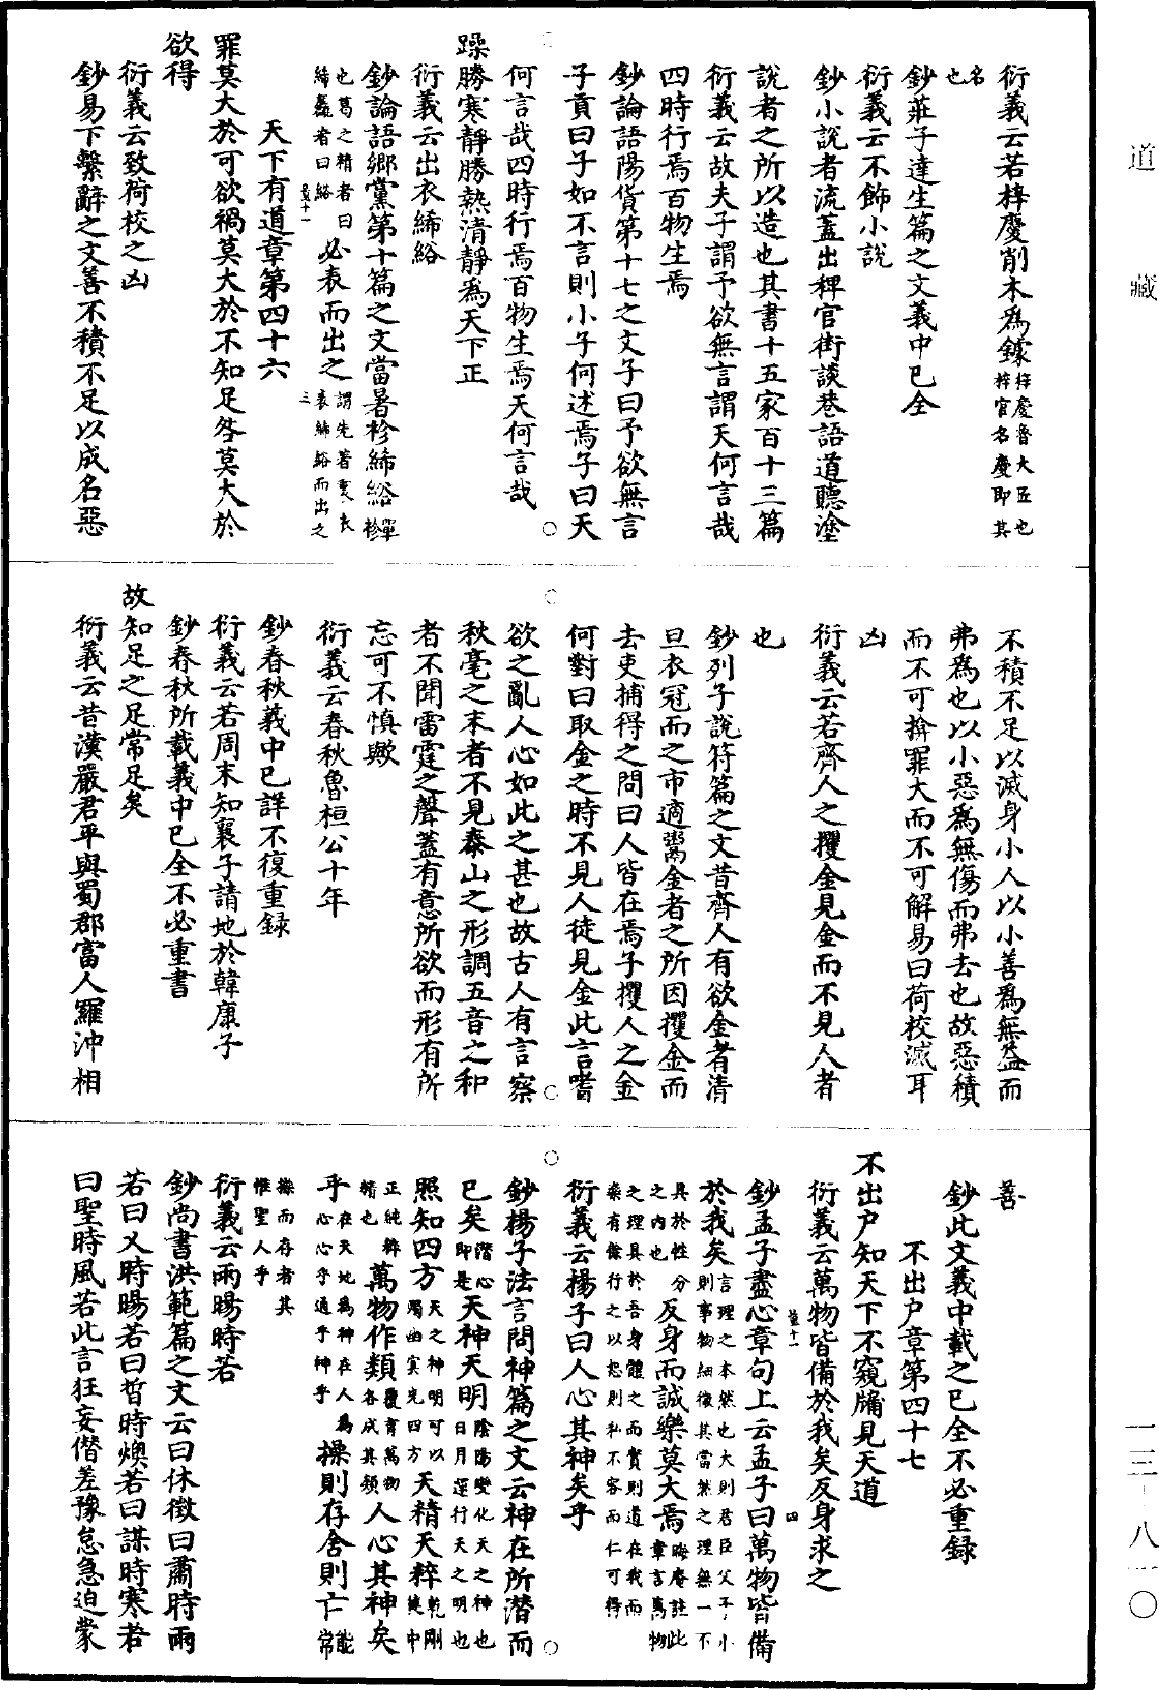 道藏
衍義云若梓慶削木爲鐻梓慶魯大匠也梓官名慶即其
名也
鈔莊子達生篇之文義中已全
衍義云不飾小說
鈔小說者流蓋出稗官街談巷語道聽塗
說者之所以造也其書十五家百十三篇
衍義云故夫子謂予欲無言謂天何言哉
四時行焉百物生焉
鈔論語陽貨第十七之文子曰予欲無言
子貢曰子如不言則小子何述焉子曰天
何言哉四時行焉百物生焉天何言哉
躁勝寒靜勝熱清靜爲天下正
衍義云出衣絺綌
鈔論語鄉黨第十篇之文當暑袗絺綌袗單
也葛之精者曰絺麤者曰綌必表而出之謂先著裏衣表絺綌而出之
天下有道章第四十六
罪莫大於可欲禍莫大於不知足咎莫大於
欲得
衍義云致荷校之凶
鈔易下繫辭之文善不積不足以成名惡
不積不足以滅身小人以小善爲無益而
弗爲也以小惡爲無傷而弗去也故惡積
而不可揜罪大而不可解易曰荷校滅耳
凶
衍義云若齊人之攫金見金而不見人者
也
鈔列子說符篇之文昔齊人有欲金者清
旦衣冠而之市適鬻金者之所因攫金而
去吏捕得之問曰人皆在焉子攫人之金
何對曰取金之時不見人徒見金此言嗜
欲之亂人心如此之甚也故古人有言察
秋毫之末者不見泰山之形調五音之和
者不聞雷霆之聲蓋有意所欲而形有所
忘可不慎歟
衍義云春秋魯桓公十年
鈔春秋義中已詳不復重録
衍義云若周末知襄子請地於韓康子
鈔春秋所載義中已全不必重書
故知足之足常足矣
衍義云昔漢嚴君平與蜀郡富人羅沖相
善
鈔此文義中載之已全不必重録
不出户章第四十七
不出户知天下不窺牖見天道
衍義云萬物皆備於我矣反身求之
鈔孟子盡心章句上云孟子曰萬物皆備
於我矣言理之本然也大則君臣父子小則事物細微其當然之理無一不
具於性分之内也反身而誠樂莫大焉晦庵註此章言萬物
之理具於吾身體之而實則道在我而樂有餘行之以恕則私不容而仁可得
衍義云楊子曰人心其神矣乎
鈔楊子法言問神篇之文云神在所潜而
已矣潜心即是天神天明陰陽變化天之神也日月運行天之明也
照知四方天之神明可以燭幽冥先四方天精天粹乾剛健中
正純粹精也萬物作類覆育萬物各成其類人心其神矣
乎在天地爲神在人爲心心乎通乎神乎操則存舍則亡能常
操而存者其惟聖人乎
衍義云雨暘時若
鈔尚書洪範篇之文云曰休徵曰肅時雨
若曰乂時暘若曰晢時燠若曰謀時寒若
曰聖時風若此言狂妄僭差豫怠急迫蒙
一三—八一〇